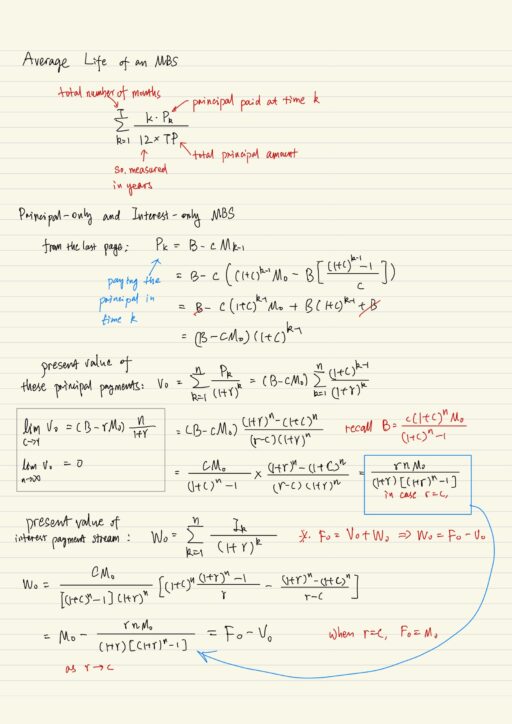 Average Life of an MBS
total number of months
principal paid at time k
T
∑ k=1 k · Pk / 12 × TP
total principal amount
so. measured
in years
Principal-only and Interest-only MBS
from the last page: Pk = B - c Mk-1
= B - c ( (1+c)^k-1 M0 - B [ ((1+c)^k-1 - 1) / c ] )
paying the
principal in
time k
= B - c (1+c)^k-1 M0 + B (1+c)^k-1 + B
= (B - cM0) (1+c)^k-1
present value of
these principal payments: V0 = ∑ k=1 n Pk / (1+r)^k = (B - cM0) ∑ k=1 n (1+c)^k-1 / (1+r)^k
lim c→r V0 = (B - rM0) n / (1+r)
= (B - cM0) ((1+r)^n - (1+c)^n) / ((r-c)(1+r)^n) recall B = c(1+c)^n M0 / ((1+c)^n - 1)
lim n→∞ V0 = 0
= cM0 / ((1+c)^n - 1) × ((1+r)^n - (1+c)^n) / ((r-c)(1+r)^n) = r n M0 / ((1+r) [(1+r)^n - 1])
in case r=c,
present value of
interest payment stream: W0 = ∑ k=1 n Ik / (1+r)^k ※. F0 = V0 + W0 ⇒ W0 = F0 - V0
W0 = cM0 / ([(1+c)^n - 1] (1+r)^n) [ (1+c)^n ((1+r)^n - 1) / r - ((1+r)^n - (1+c)^n) / (r-c) ]
= M0 - r n M0 / ((1+r) [(1+r)^n - 1]) = F0 - V0 when r=c, F0 = M0
as r → c